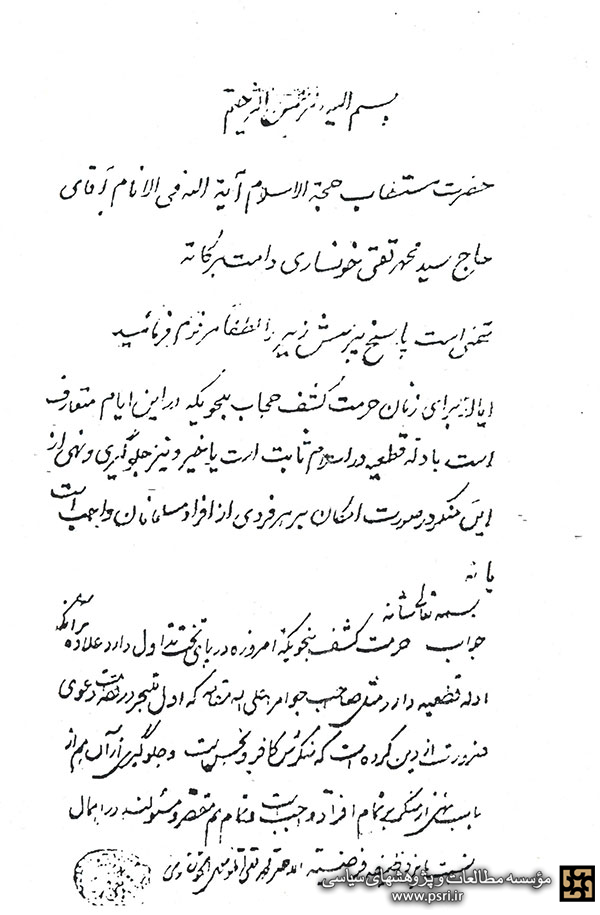 بسم الله الرحمن الرحیم
حضرت مستطاب حجة الاسلام آیة الله فی الانام آقای
حاج سید محمد تقی خونساری دامت برکاته
متمنی است پاسخ پرسش زیر را لطفاً مرقوم فرمائید
ایا برای زنان حرمت کشف حجاب بنحویکه در این ایام متعارف
است با دله قطعیه در اسلام ثابت است یا خیر و نیز جلوگیری و نهی از
این منکر در صورت امکان بر هر فردی از افراد مسلمانان واجب است
یا نه
بسمه تعالی شانه
جواب حرمت کشف بنحویکه امروزه در پایتخت تداول دارد علاوه بر آنکه
ادله قطعیه دارد مثل صاحب جواهر اعلی الله مقامه که اول متبحر در فقه است دعوی
ضرورت از دین کرده است که منکرش کافر و نجس است و جلوگیری از آن هم از
باب نهی از منکر بر تمام افراد واجب است و تمام هم مقصر و مسئولند در اهمال
نسبت باین وظیفه و فریضه الاحقر محمد تقی الموسوی الخونساری
مؤسسه مطالعات و پژوهشهای سیاسی
www.psri.ir